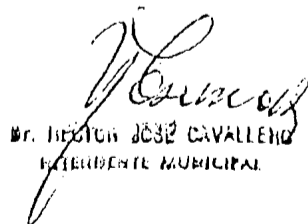 Dr. HECTOR JOSÉ CAVALLERO
INTENDENTE MUNICIPAL